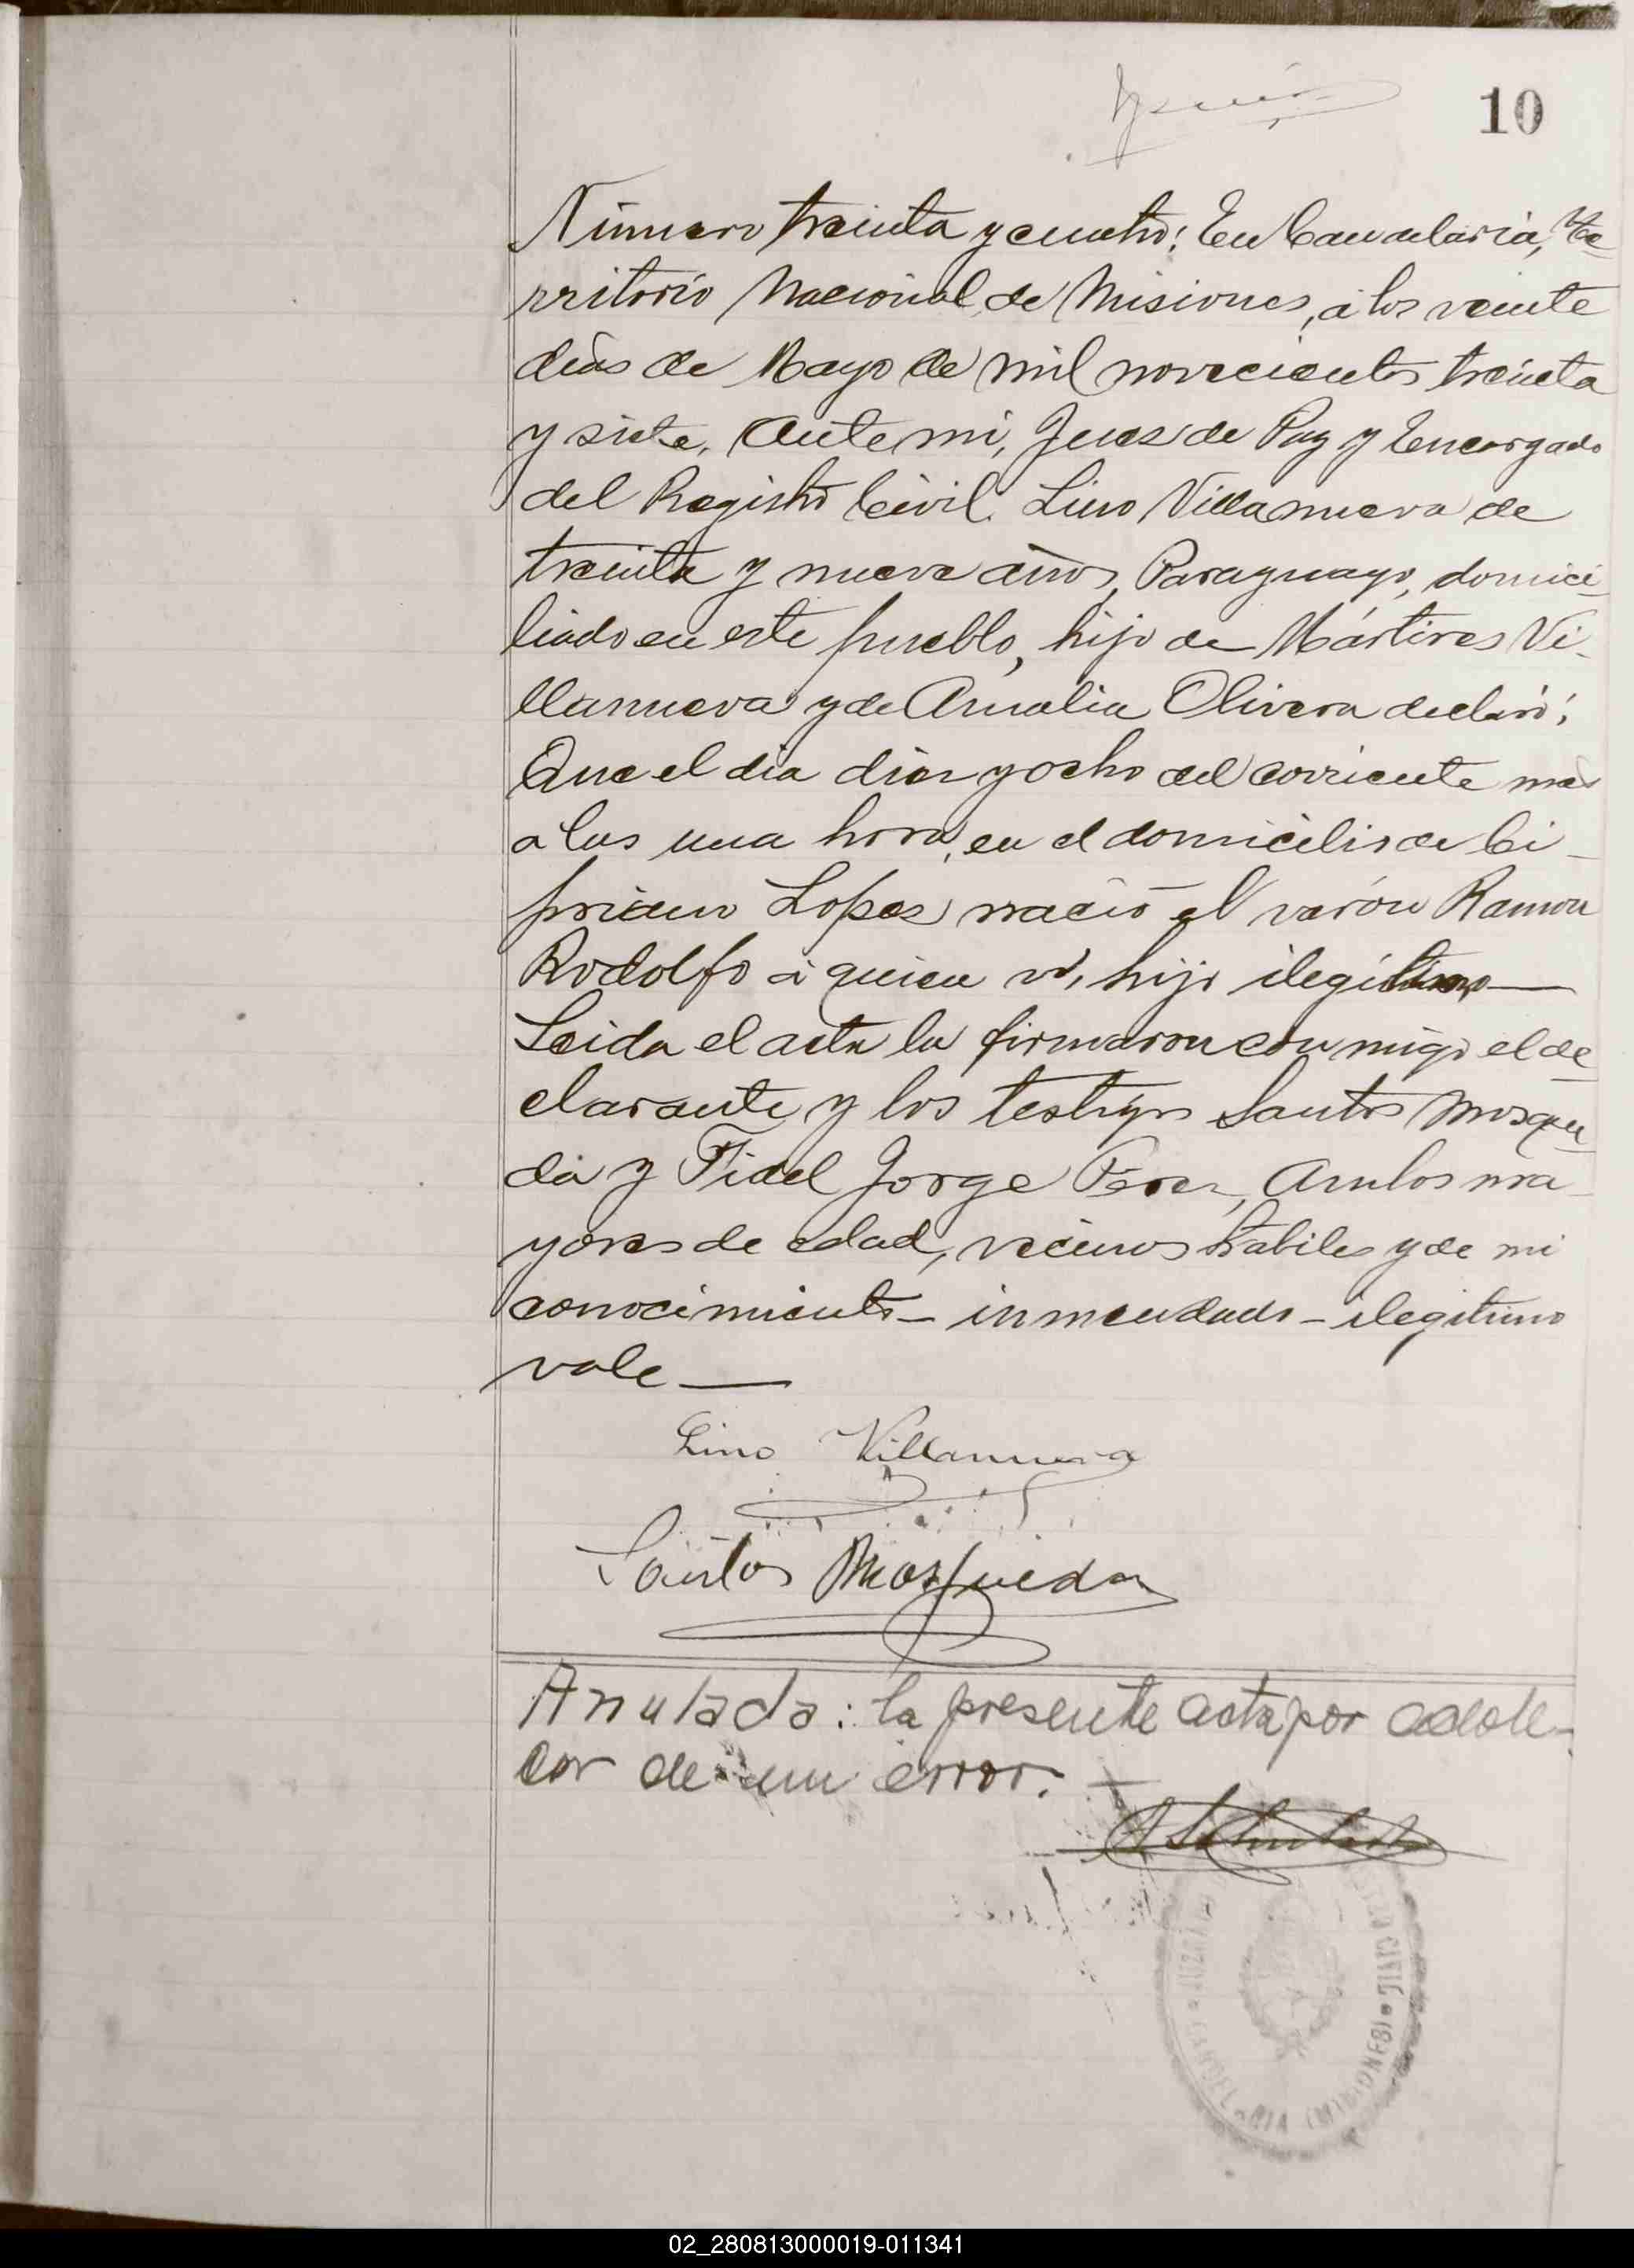 10
Número treinta y cuatro: En Candelaria, Te-
rritorio Nacional de Misiones, á los veinte
días de Mayo de mil novecientos treinta
y siete, Ante mi, Juez de Paz y Encargado
del Registro Civil. Lino Villanueva de
treinta y nueve años, Paraguayo, domici-
liado en este pueblo, hijo de Mártires Vi-
llanueva y de Amalia Olivera declaró:
Que el dia diez y ocho del corriente mes
a las una hora, en el domicilio de Ci-
priano Lopez nació el varón Ramon
Rodolfo á quien vi, hijo ilegítimo —
Leida el acta la firmaron con migo el de-
clarante y los testigos Santos Mosque-
da y Fidel Jorge Perez, Ambos ma-
yores de edad, vecinos habiles y de mi
conocimiento - inmendado - ilegitimo
vale —
Lino Villanueva
Santos Mosqueda
Anulada: la presente acta por adole-
cer de un error. —
JUZGADO
CANDELARIA (MISIONES)
CIVIL
02_280813000019-011341